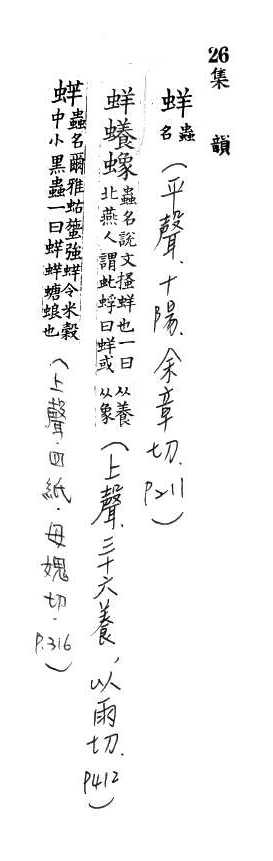 26 集韻
蛘 蟲名 (平聲、十陽、余章切、P211)
蛘蟓 蟲名說文搔蛘也一曰北燕人謂蚍蜉曰蛘或从養从象 (上聲、三十六養、以兩切、P412)
蛘 蟲名爾雅蛄䗐強蛘今米穀中小黑蟲一曰蛘蛘螗蜋也 (上聲·四紙·母媿切·P.316)